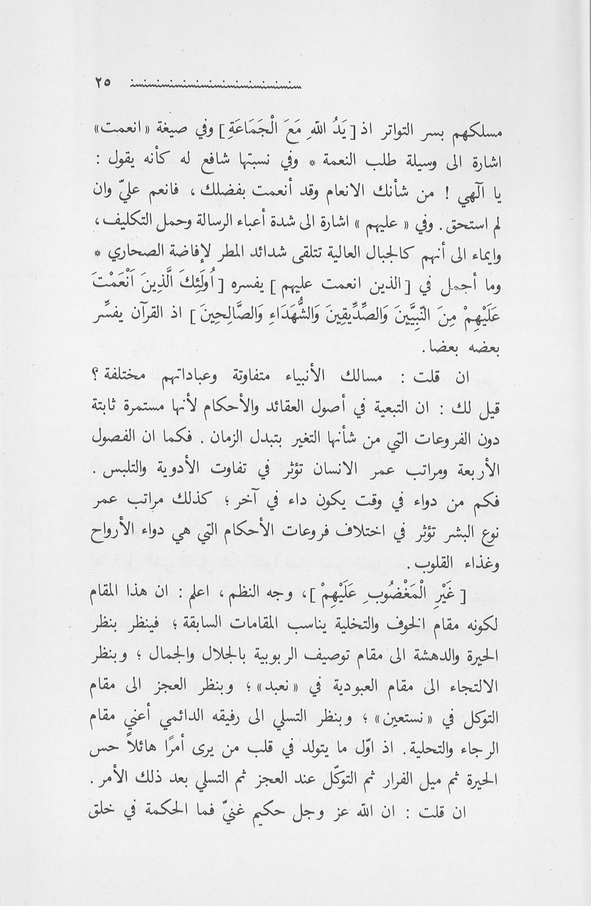 ٢٥
مسلكهم بسر التواتر اذ [ يَدُ اللّٰهِ مَعَ الْجَمَاعَةِ ] وفي صيغة « انعمت»
اشارة الى وسيلة طلب النعمة * وفي نسبتها شافع له كأنه يقول :
يا الٓهي ! من شأنك الانعام وقد أنعمت بفضلك ، فانعم عليّ وان
لم استحق . وفي « عليهم » اشارة الى شدة أعباء الرسالة وحمل التكليف ،
وايماء الى أنهم كالجبال العالية تتلقى شدائد المطر لإفاضة الصحاري *
وما أجمل في [ الذين انعمت عليهم ] يفسره [ اُولَئِكَ الَّذِينَ اَنْعَمْتَ
عَلَيْهِمْ مِنَ النَّبِيِّينَ وَالصِّدِّيقِينَ وَالشُّهَدَاءِ وَالصَّالِحِينَ ] اذ القرآن يفسِّر
بعضه بعضا .
ان قلت : مسالك الأنبياء متفاوتة وعباداتهم مختلفة ؟
قيل لك : ان التبعية في أصول العقائد والأحكام لأنها مستمرة ثابتة
دون الفروعات التي من شأنها التغير بتبدل الزمان . فكما ان الفصول
الأربعة ومراتب عمر الانسان تؤثر في تفاوت الأدوية والتلبس .
فكم من دواء في وقت يكون داء في آخر ؛ كذلك مراتب عمر
نوع البشر تؤثر في اختلاف فروعات الأحكام التي هي دواء الأرواح
وغذاء القلوب .
[ غَيْرِ الْمَغْضُوبِ عَلَيْهِمْ ] ، وجه النظم ، اعلم : ان هذا المقام
لكونه مقام الخوف والتخلية يناسب المقامات السابقة ؛ فينظر بنظر
الحيرة والدهشة الى مقام توصيف الربوبية بالجلال والجمال ؛ وبنظر
الالتجاء الى مقام العبودية في « نعبد» ؛ وبنظر العجز الى مقام
التوكل في « نستعين» ؛ وبنظر التسلي الى رفيقه الدائمي أعني مقام
الرجاء والتحلية . اذ اوّل ما يتولد في قلب من يرى أمرًا هائلاً حس
الحيرة ثم ميل الفرار ثم التوكّل عند العجز ثم التسلي بعد ذلك الأمر .
ان قلت : ان الله عز وجل حكيم غنيّ فما الحكمة في خلق